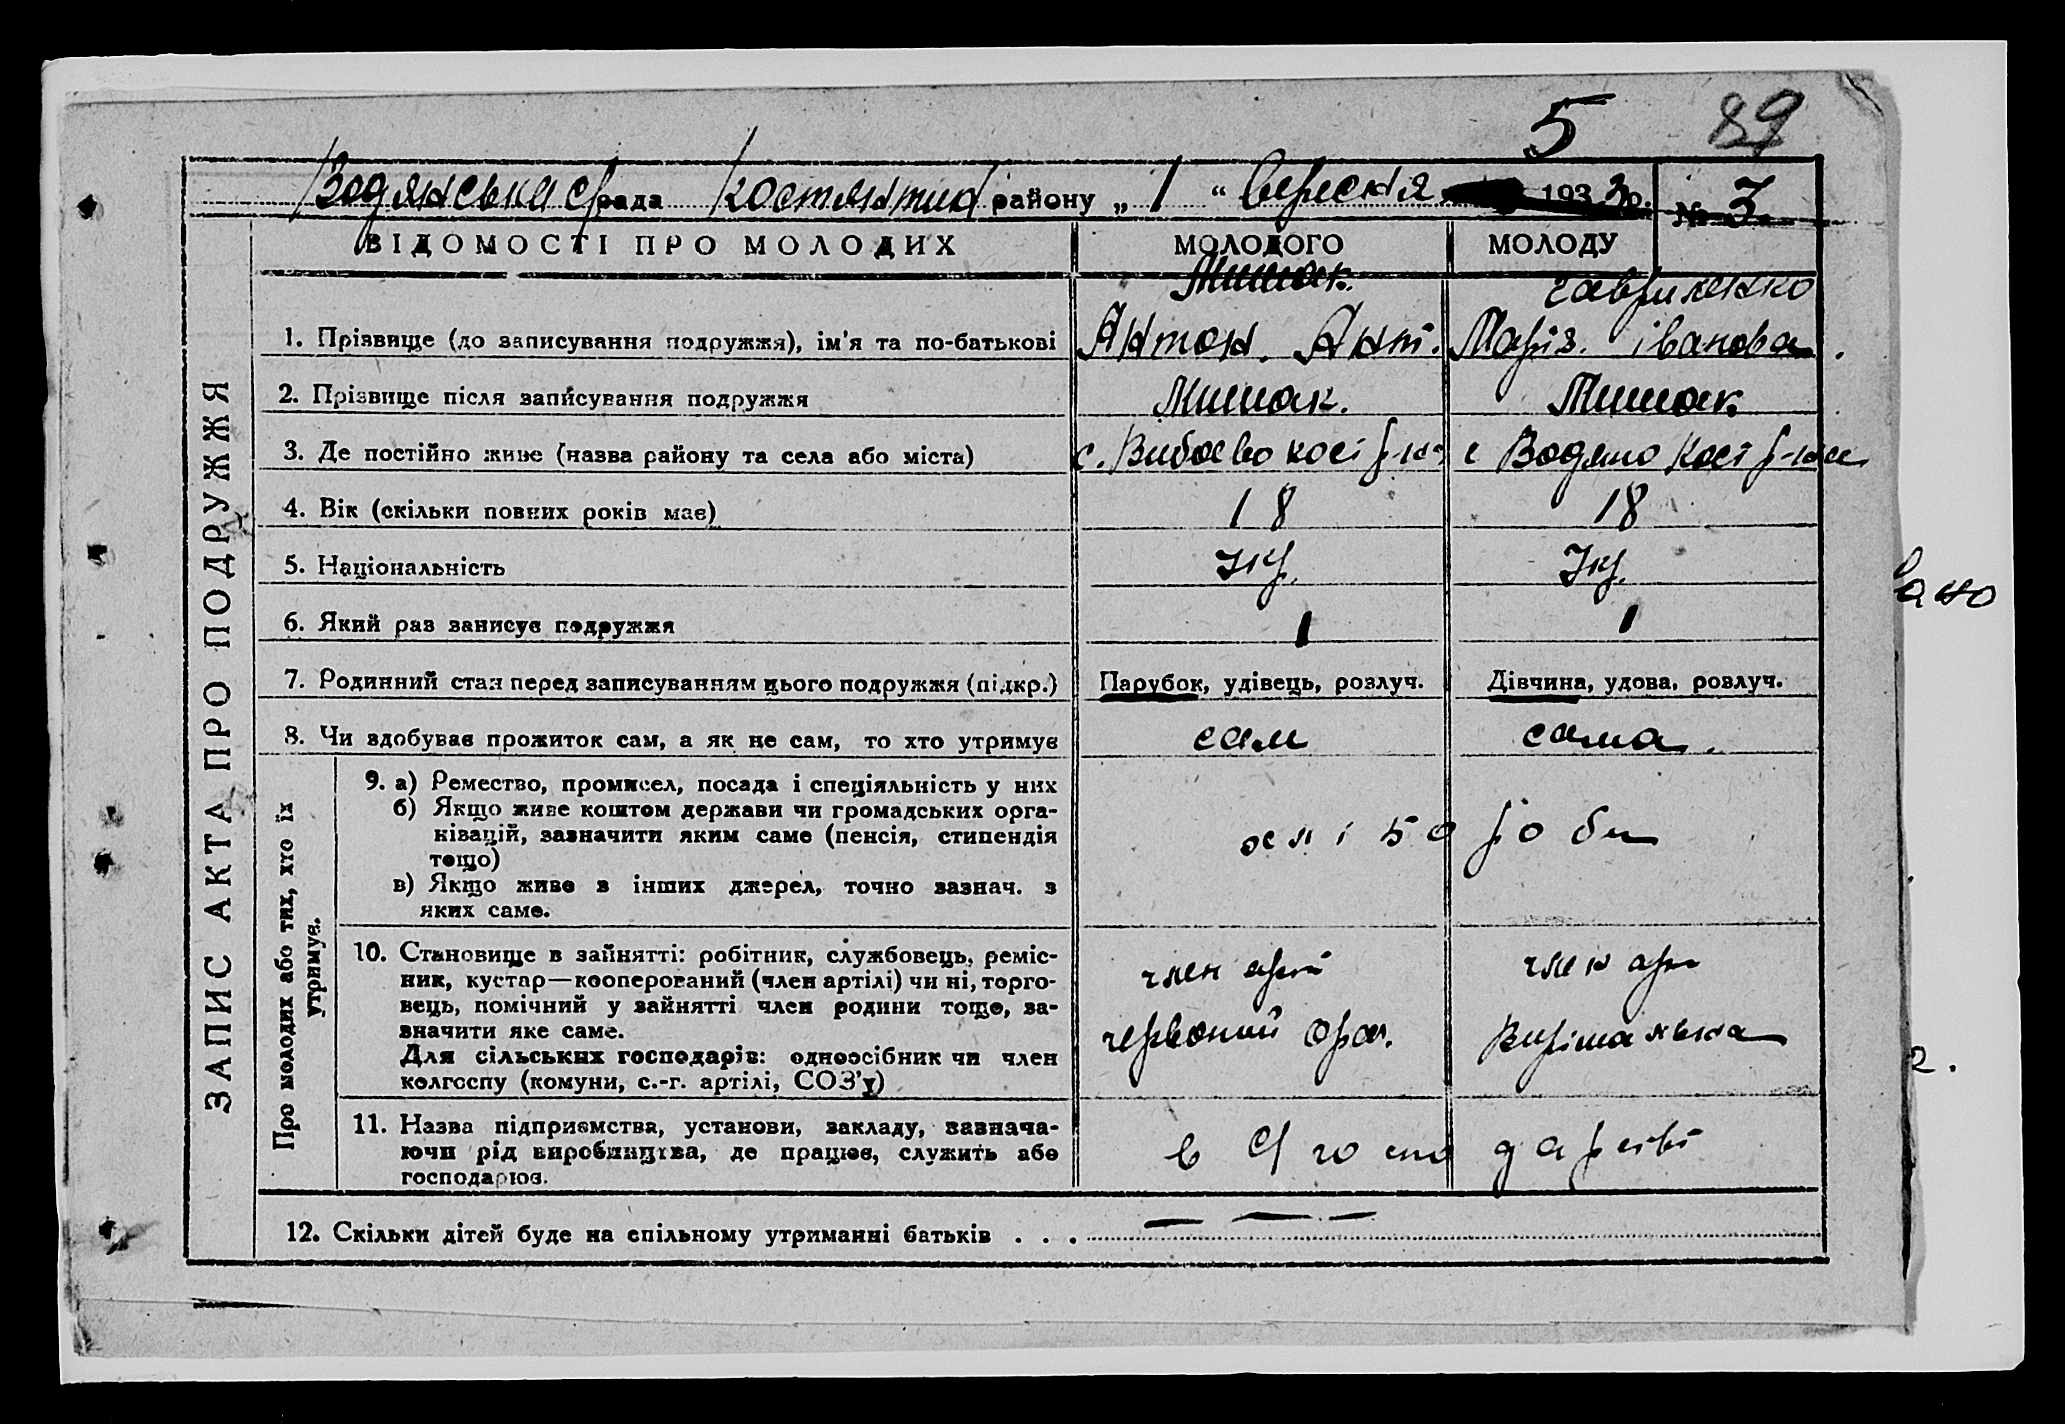 5 89
Водянська с/рада Костянтин району „ 1 “ вересня 1933 р. № 3
ВІДОМОСТІ ПРО МОЛОДИХ МОЛОДОГО МОЛОДУ
Мишак. Гавриленко
1. Прізвище (до записування подружжя), ім'я та по-батькові Антон. Ант. Марія. Іванова.
2. Прізвище після записування подружжя Мишак. Мишак
3. Де постійно живе (назва району та села або міста) с. Водяно Кост р-на
4. Вік (скільки повних років має) 18 18
5. Національність Укр. Укр.
6. Який раз записує подружжя 1 1
7. Родинний стан перед записуванням цього подружжя (підкр.) Парубок, удівець, розлуч. Дівчина, удова, розлуч.
8. Чи здобуває прожиток сам, а як не сам, то хто утримує сам сама.
9. а) Ремество, промисел, посада і спеціяльність у них
б) Якщо живе коштом держави чи громадських орга-
нізацій, зазначити яким саме (пенсія, стипендія
тощо)
в) Якщо живе з інших джерел, точно зазнач. з
яких саме.
хлібороби
10. Становище в зайнятті: робітник, службовець, реміс-
ник, кустар—кооперований (член артілі) чи ні, торго-
вець, помічний у зайнятті член родини тощо, за-
значити яке саме.
Для сільських господарів: одноосібник чи член
колгоспу (комуни, с.-г. артілі, СОЗ'у)
член арт член арт
червоний
11. Назва підприємства, установи, закладу, зазнача-
ючи рід виробництва, де працює, служить або
господарює.
в с/господарстві
12. Скільки дітей буде на спільному утриманні батьків . . . — — —
ЗАПИС АКТА ПРО ПОДРУЖЖЯ
Про молодих або тих, хто їх
утримує.
вано